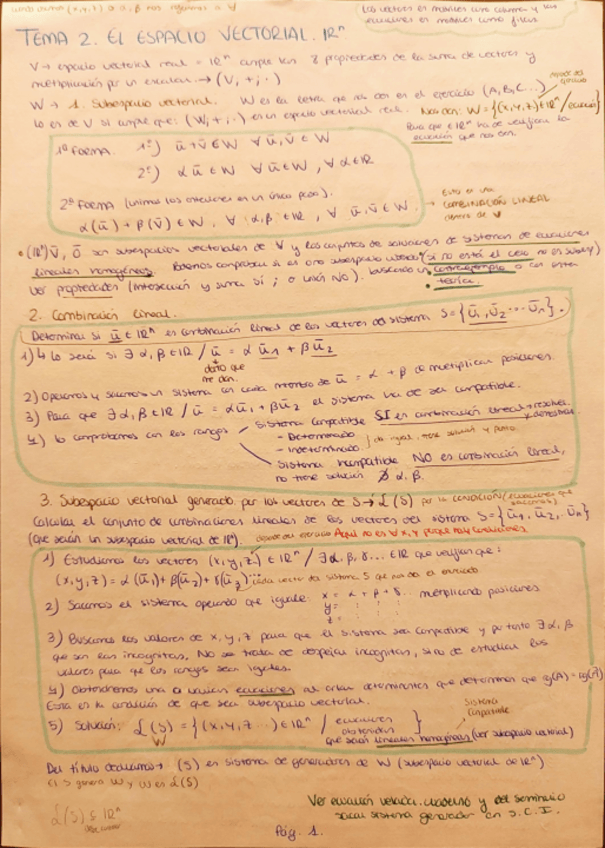 Los vectores en matrices como columna y las
ecuaciones en matrices como filas.
TEMA 2. EL ESPACIO VECTORIAL. ℝⁿ
V → espacio vectorial real = ℝⁿ cumple las 8 propiedades de la suma de vectores y
multiplicación por un escalar → (V, +; ·)
W → 1. Subespacio vectorial. W es la letra que nos dan en el ejercicio (A, B, C...)
Lo es de V si cumple que: (W, +, ·) es un espacio vectorial real. Nos dan: W = {(x, y, z) ∈ ℝⁿ / ecuación}
Para que ∈ ℝⁿ ha de verificar la
ecuación que nos den.
1ª FORMA. 1º) ū + v̄ ∈ W ∀ ū, v̄ ∈ W
2º) α ū ∈ W ∀ ū ∈ W, ∀ α ∈ ℝ
2ª FORMA (unimos las anteriores en un único paso).
α(ū) + β(v̄) ∈ W, ∀ α, β ∈ ℝ, ∀ ū, v̄ ∈ W
→ Esto es una
COMBINACIÓN LINEAL
dentro de V
• (ℝⁿ) V, Ō son subespacios vectoriales de V y los conjuntos de soluciones de sistemas de ecuaciones
lineales homogéneas. Podemos comprobar si es o no subespacio (si no está el cero no es subesp)
ver propiedades (intersección y suma sí; o unión no). buscando un contraejemplo o con
teoría.
2. Combinación lineal.
Determinar si ū ∈ ℝⁿ es combinación lineal de los vectores del sistema S = {ū₁, ū₂ ... ūₙ}.
1) ↳ lo será si ∃ α, β ∈ ℝ / ū = α ū₁ + β ū₂
dato que
me dan.
2) Operamos y sacamos un sistema con cada miembro de ū = α + β de multiplicar posiciones.
3) Para que ∃ α, β ∈ ℝ / ū = α ū₁ + β ū₂ el sistema ha de ser compatible.
4) lo comprobamos con los rangos
sistema compatible SI es combinación lineal → resolver
y demostrar
- Determinado
- indeterminado
da igual, tiene solución y punto
sistema incompatible NO es combinación lineal,
no tiene solución ∄ α, β.
3. Subespacio vectorial generado por los vectores de S → ℒ(S) por la CONDICIÓN (ecuaciones que
sacamos)
Calcular el conjunto de combinaciones lineales de los vectores del sistema S = {ū₁, ū₂, ... ūₙ}
(que serán un subespacio vectorial de ℝⁿ). depende del ejercicio Aquí no es ∀ x, y porque hay condiciones.
1) Estudiamos los vectores (x, y, z) ∈ ℝⁿ / ∃ α, β, γ... ∈ ℝ que verifican que:
(x, y, z) = α(ū₁) + β(ū₂) + γ(ū₃) cada vector del sistema S que nos da el enunciado
2) Sacamos el sistema operando que iguale: x = α + β + γ... multiplicando posiciones
y =
z =
3) Buscamos los valores de x, y, z para que el sistema sea compatible y por tanto ∃ α, β
que son las incógnitas. No se trata de despejar incógnitas, sino de estudiar los
valores para que los rangos sean iguales.
4) Obtendremos una o varias ecuaciones al orlar determinantes que determinen que rg(A) = rg(A*)
Esta es la condición de que sea subespacio vectorial.
5) Solución: ℒ(S) = {(x, y, z ...) ∈ ℝⁿ / ecuaciones
obtenidas }
W
Sistema
compatible
que serán lineales homogéneas (ver subespacio vectorial)
Del título deducimos → (S) es sistema de generadores de W (subespacio vectorial de ℝⁿ)
ℒ(S) ⊆ ℝⁿ
Ver ecuación cuaderno y del seminario
sacar sistema generador en S.C.I.
Pág. 1.